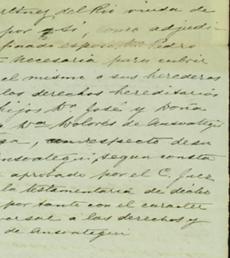 del Rio viuda de
por sí, como adjudi
finado esposo Don Pedro
necesaria para cubrir
el mismo a sus herederos
los derechos hereditarios
hijos Dn. José y Doña
y Dña Dolores de Ansoategui
respecto de su
Ansoategui, segun consta
aprobado por el C. Juez
la testamentaria de dicho
por tanto con el caracter
a los derechos y
de Ansoategui